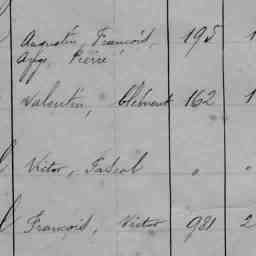 Augustin, François, 195 1
Pierre
Valentin, Clément 162 1
Victor, Pascal " "
François, Victor 981 2